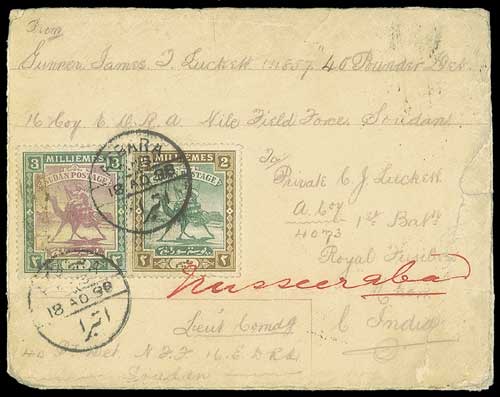 From
Gunner James T. Luckett 40 Pounder Det
16 Coy E. D. R. A Nile Field Force Soudan
3 MILLIEMES 3
SUDAN POSTAGE
MILLIEMES 2
SUDAN POSTAGE
ATBARA
18 AU 98
To
Private C J Luckett
A. Coy
4073 1st Batt
Royal Fusiliers
Nusseerabad
India
ATBARA
18 AU 98
اتبرا
Lieut Comdg
40 Pr Det N. F. F 16. E. D. R. A
Soudan